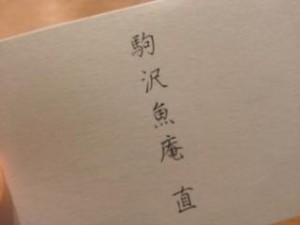 駒沢魚庵 直